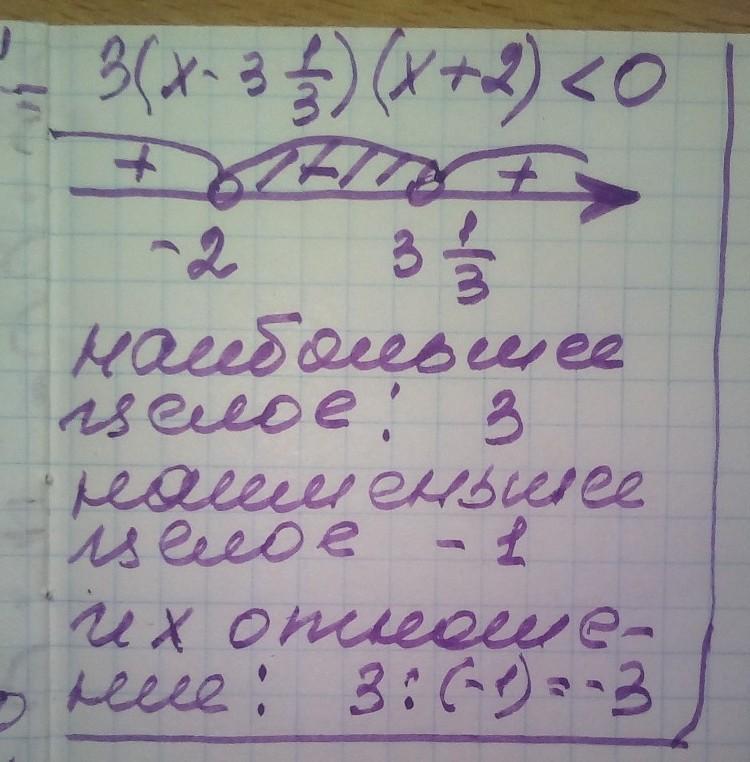 3(x - 3 1/3)(x + 2) < 0
+ - +
-2 3 1/3
наибольшее
целое: 3
наименьшее
целое -1
их отноше-
ние: 3 : (-1) = -3